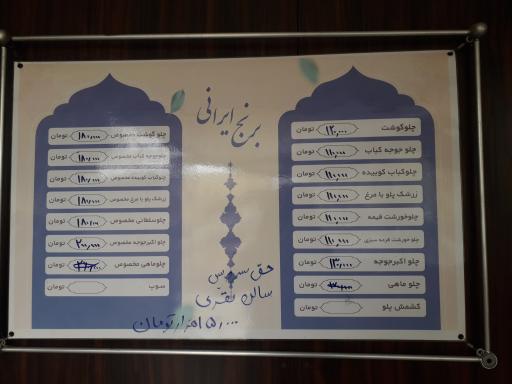 برنج ایرانی
چلوگوشت ۱۲۰,۰۰۰ تومان
چلو جوجه کباب ۱۱۰,۰۰۰ تومان
چلوکباب کوبیده ۱۱۰,۰۰۰ تومان
زرشک پلو با مرغ ۱۱۰,۰۰۰ تومان
چلوخورشت قیمه ۱۱۰,۰۰۰ تومان
چلو خورشت قرمه سبزی ۱۱۰,۰۰۰ تومان
چلو اکبرجوجه ۱۳۰,۰۰۰ تومان
چلو ماهی تومان
کشمش پلو تومان
چلو گوشت مخصوص ۱۸۰,۰۰۰ تومان
چلوجوجه کباب مخصوص ۱۸۰,۰۰۰ تومان
چلوکباب کوبیده مخصوص ۱۸۰,۰۰۰ تومان
زرشک پلو با مرغ مخصوص ۱۸۰,۰۰۰ تومان
چلوسلطانی مخصوص ۱۸۰,۰۰۰ تومان
چلو اکبرجوجه مخصوص ۲۰۰,۰۰۰ تومان
چلوماهی مخصوص تومان
سوپ تومان
حق سرویس
سالن نفری
۱۵,۰۰۰ هزار تومان